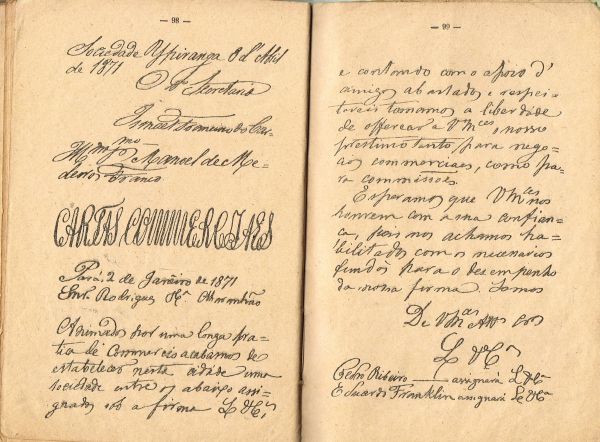 — 98 —
Sociedade Ypiranga 8 d'Abril
de 1871
O 1º Secretario
Ismael Torneiro do Car-
mo
Manoel de Me-
deiros Franco
CARTAS COMMERCIAES
Pará, 2 de Janeiro de 1871
Snr. Rodrigues & Cª Maranhão
Animados por uma longa pra-
tica de Commercio acabamos de
estabelecer nesta cidade uma
sociedade entre os abaixo assi-
gnados sob a firma L & Cª,
— 99 —
e contando com o apoio d'
amigos abastados e respei-
taveis tomamos a liberdade
de offerecer a Vmces, nosso
prestimo tanto para nego-
cios commerciaes, como pa-
ra commissões.
Esperamos que Vmces nos
honrem com a sua confian-
ça, pois nos achamos ha-
bilitados com os necesarios
fundos para o desempenho
da nossa firma. Somos
De Vmces Attos
L & Cª
Pedro Ribeiro — assignará L & Cª
Eduardo Franklin assignará L & Cª